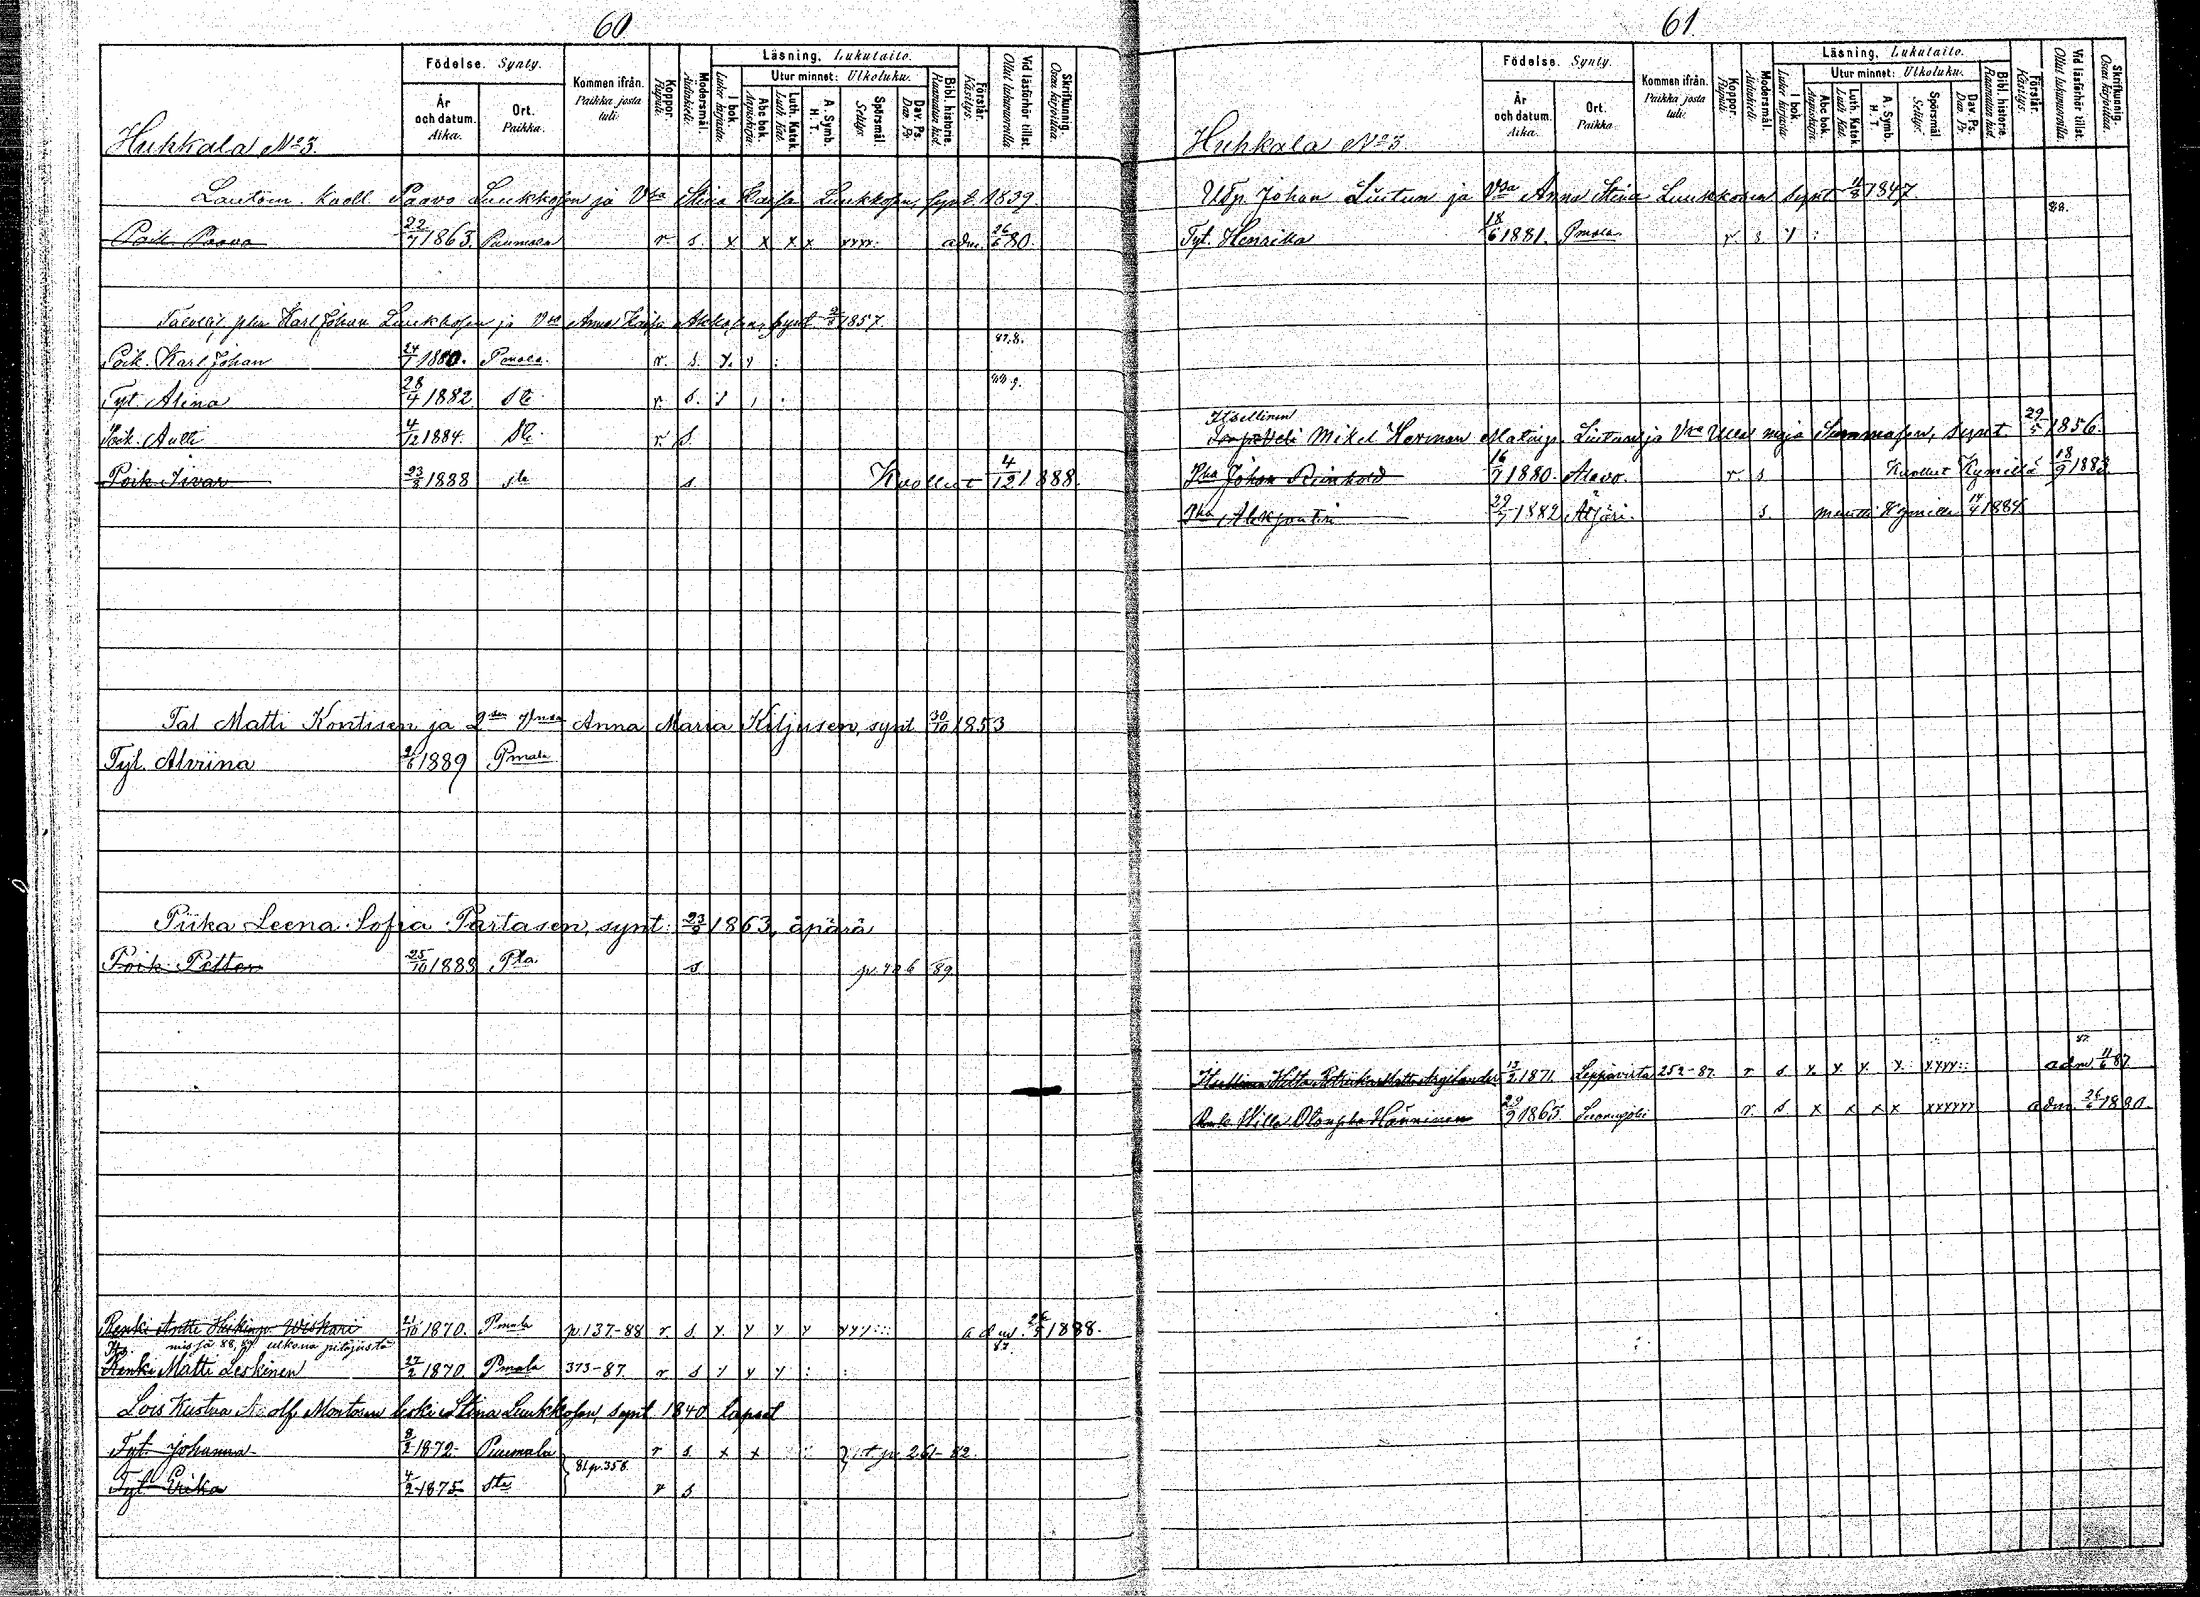 60.
Huhkala No 3.
Födelse. Synty.
År och datum. Aika.
Ort. Paikka.
Kommen ifrån. Paikka josta tuli.
Koppor. Rupuli.
Modersmål. Äidinkieli.
Läsning. Lukutaito.
I bok. Luku kirjasta.
Utur minnet: Ulkoluku.
Abc bok. Aapiskirja.
Luth. Katek. Luth. Kat.
A. Symb. H. T.
Spörsmål. Selitys.
Dav. Ps. Dav. Ps.
Bibl. historie. Raamatun hist.
Förstår. Käsitys.
Vid läsförhör tillst. Ollut lukuvuorolla
Skrifkunnig. Osaa kirjoittaa.
Lautam. kuoll. Paavo Luukkosen ja Vsa Stina Kaisa Luukkosen, synt. 1839.
Poik. Paavo 22/7 1863. Puumala r. s. x x x x xxxx. adm. 26/6 80.
Karl Johan Luukkosen ja Vsa Anna Kaisa synt 1857.
87.8.
Poik. Karl Johan 24/7 1880. Pmala. r. s. y. y :
Tyt. Alina 28/4 1882 Ste r. s.
Poik. Antti 4/12 1884. Ste r. s.
Poik Iivar 23/8 1888 Ste s Kuollut 4/12 1888.
Tal Matti Kontisen ja 2sen Vmsa Anna Maria Kiljusen, synt 30/10 1853
Tyt. Alviina 1889 Pmala
Piika Leena Sofia Partasen, synt. 1863, äpärä
Poik Petter 25/10 1888 Pla s. 89
Renki Antti Heikinp. Viskari 1870. Pmala p. 137-88 r. s. y y y y yyy::: adm. 1888.
87.
Its. ulkona pitäjästä
Renki Matti Leskinen 27/2 1870. Pmala 373-87. r s y y y : :
Lois Kustaa Adolf Montosen leski Stina Luukkosen, synt 1840 lapset
Tyt. Johanna 8/2 1872 Puumala r s x x : 261-82.
81 p. 358.
Tyt. Erika 4/2 1875 Sta r s
61.
Huhkala No 3
Födelse. Synty.
År och datum. Aika.
Ort. Paikka.
Kommen ifrån. Paikka josta tuli.
Koppor. Rupuli.
Modersmål. Äidinkieli.
Läsning. Lukutaito.
I bok. Luku kirjasta.
Utur minnet: Ulkoluku.
Abc bok. Aapiskirja.
Luth. Katek. Luth. Kat.
A. Symb. H. T.
Spörsmål Selitys.
Dav. Ps. Dav. Ps.
Bibl. historie. Raamatun hist.
Förstår. Käsitys.
Vid läsförhör tillst. Ollut lukuvuorolla
Skrifkunnig. Osaa kirjoittaa.
Johan Liutun ja Vsa Anna Stina Luukkosen synt 11/8 1847.
88.
Tyt. Henrika 18/6 1881. Pmala r. s. y :
Itsellinen
Mikel Herman Liutun ja Vsa Ulla Maja Summasen, synt. 29/5 1856.
Pka Johan Reinhold 16/9 1880. Alavo. r. s Kuollut Kymillä 18/9 1883
Pka 29/7 1882 Ätsäri. s. muutti Kymille 14/4 1884
87.
Itsellinen Hilta 13/2 1871 Leppävirta 252-87. r s y. y y y. yyyy:: adm. 11/6 87.
Hilla Hänninen 1865. r. s x x x x xxxxxx adm. 1880.